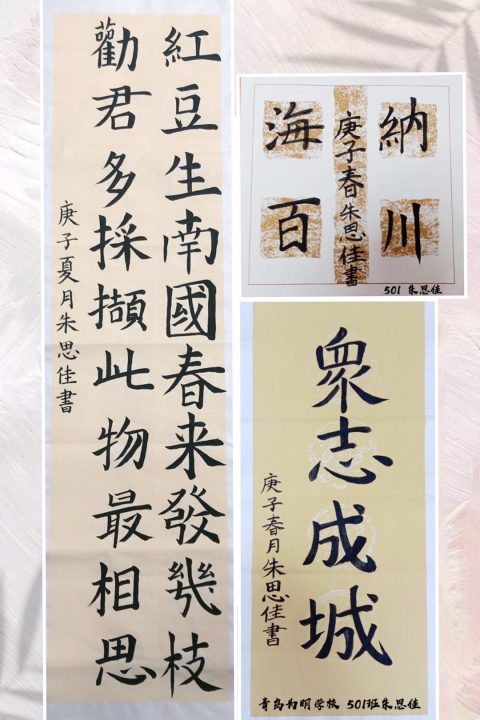 紅豆生南國春来發幾枝
勸君多採擷此物最相思
庚子夏月朱思佳書
海納
百川
庚子春朱思佳書
501 朱思佳
衆志成城
庚子春月朱思佳書
青岛为明学校 501班朱思佳